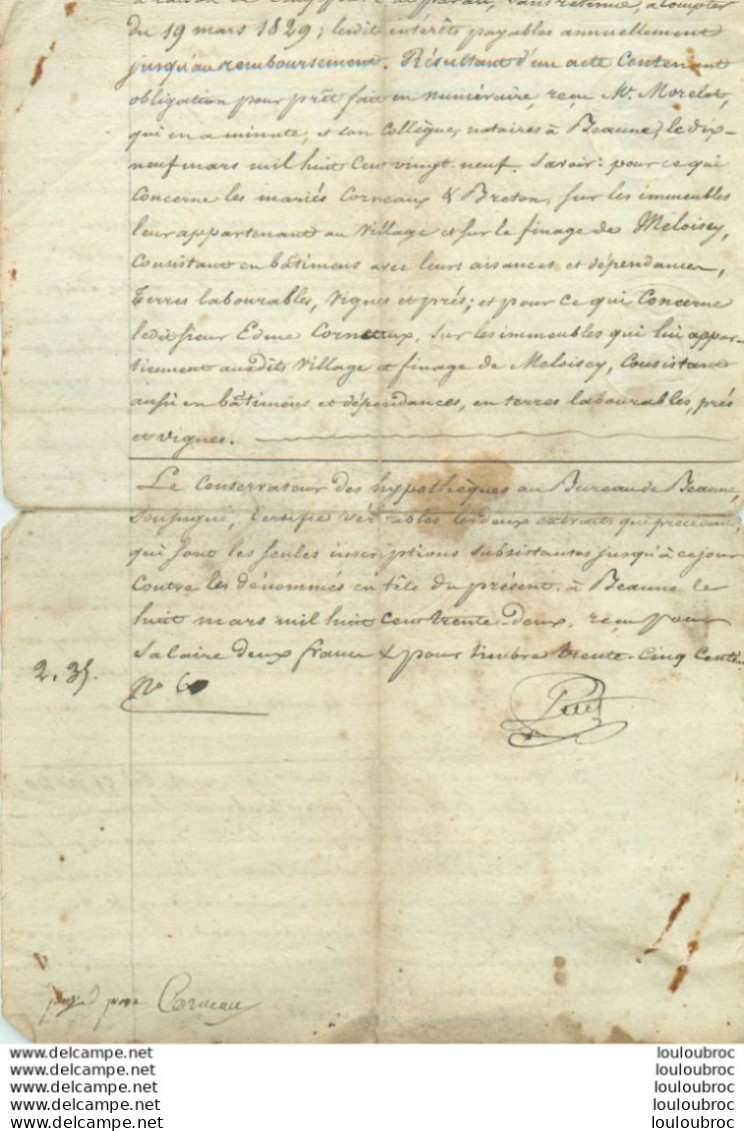 sans retenue, à compter
du 19 mars 1829; lesdits intérêts payables annuellement
jusqu'au remboursement. Résultant d'un acte Contenant
obligation pour prêt fait en numéraire, reçu Mr. Morelot,
qui en a minute, et son Collègue, notaires à Beaune, le dix-
neuf mars mil huit Cent vingt-neuf. Savoir: pour ce qui
Concerne les mariés Corneaux & Breton, sur les immeubles
leur appartenant au Village et sur le finage de Meloisey,
Consistant en bâtimens avec leurs aisances et dépendances,
Terres labourables, Vignes et prés; et pour ce qui Concerne
ledit sieur Edme Corneaux, sur les immeubles qui lui appar-
tiennent auxdits Village et finage de Meloisey, Consistant
aussi en bâtimens et dépendances, en terres labourables, prés
et vignes.
Le Conservateur des hypothèques au Bureau de Beaune,
Soussigné, Certifie véritables les deux extraits qui précèdent,
qui sont les seules inscriptions subsistantes jusqu'à ce jour
Contre les dénommés en tête du présent. à Beaune le
huit mars mil huit Cent trente-deux. reçu pour
Salaire deux francs & pour timbre trente-Cinq Centi.
2,35.
no 60
payé pour Corneau
www.delcampe.net louloubroc
www.delcampe.net louloubroc
www.delcampe.net louloubroc
www.delcampe.net louloubroc
www.delcampe.net louloubroc